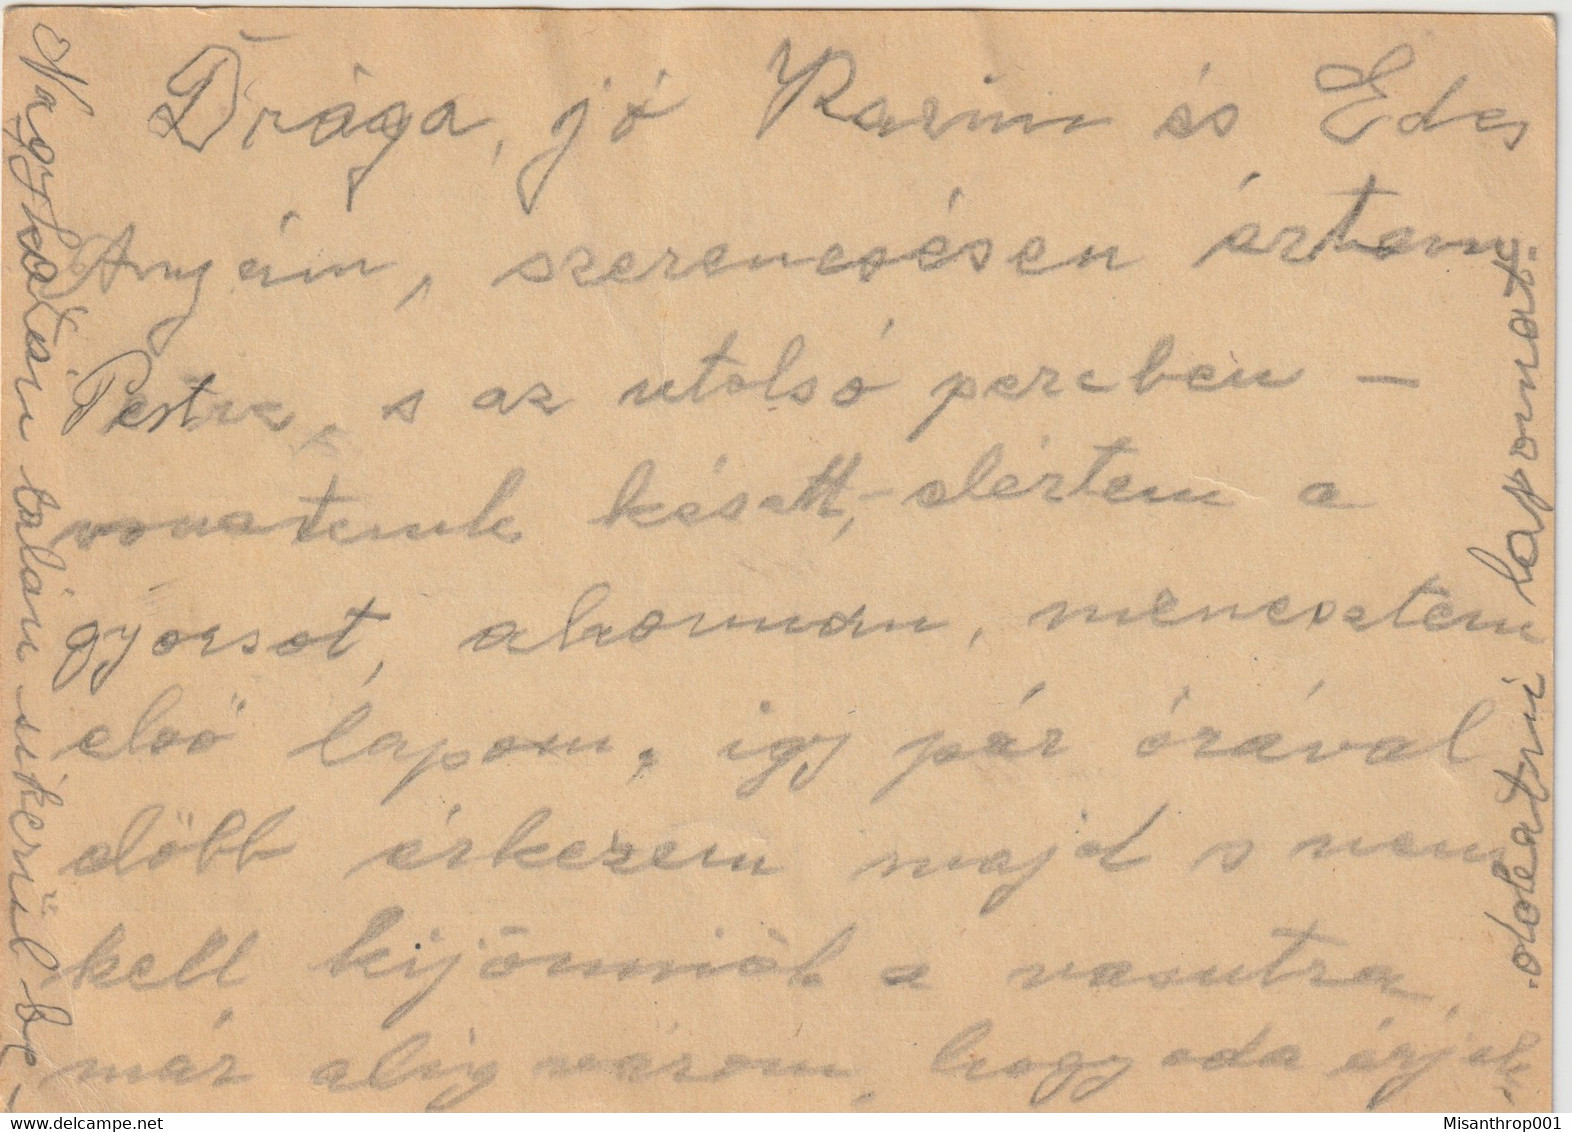 Drága, jó Karim és Édes
Anyám, szerencsésen értem
Pestre, s az utolsó percben –
vonatunk késett, – elértem a
gyorsot, ahonnan, menesztem
első lapom, így pár órával
előbb érkezem majd s nem
kell kijönniök a vasutra
már alig várom, hogy oda érjek
talán sikerül be-
dobatni lapomat.
Misanthrop001